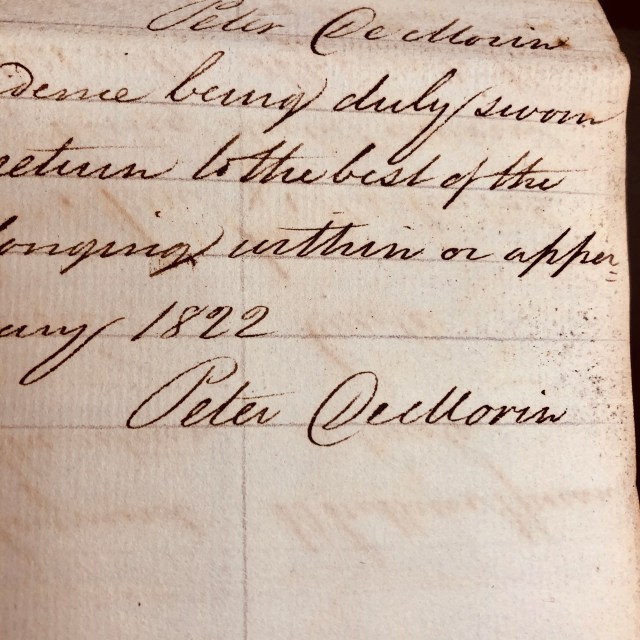 Peter DeeMorin
dence being duly sworn
eeturn to the best of the
longing within or apper
ary 1822
Peter DeeMorin